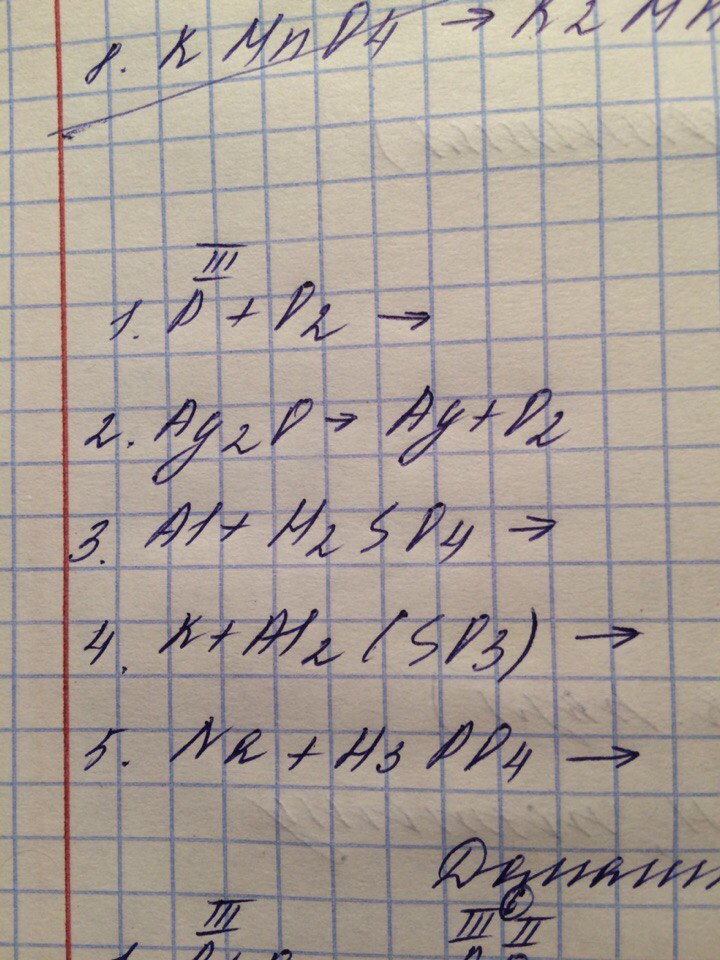 8. K MnO4 → K2 Mn
III
1. P + O2 →
2. Ag2O → Ag + O2
3. Al + H2SO4 →
4. K + Al2(SO3) →
5. Na + H3PO4 →
III III II